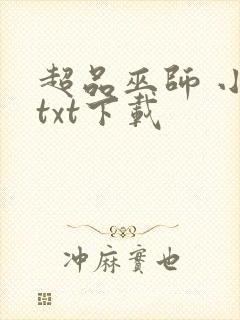 超品巫師 小
txt下載
冲麻實也